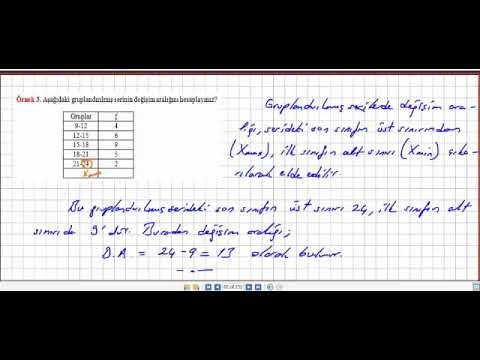 Örnek 3. Aşağıdaki gruplandırılmış serinin değişim aralığını hesaplayınız?
Gruplar f
9-12 4
12-15 6
15-18 9
18-21 5
21-24 2
Xmax
Gruplandırılmış serilerde değişim ara-
lığı, serideki son sınıfın üst sınırından
(Xmax), ilk sınıfın alt sınırı (Xmin) çıka-
rılarak elde edilir.
Bu gruplandırılmış serideki son sınıfın üst sınırı 24, ilk sınıfın alt
sınırı da 9'dur. Buradan değişim aralığı;
D.A = 24-9 = 13 olarak bulunur.